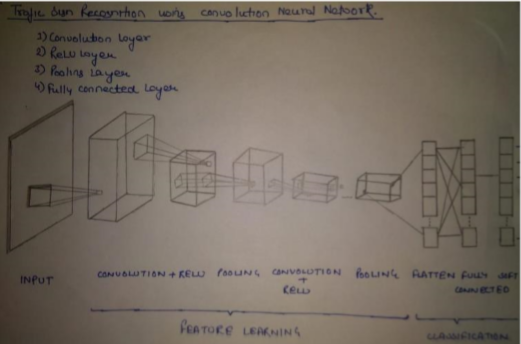 Trafic Sign Recognition using convolution Neural Network.
1) Convolution Layer
2) Relu Layer
3) Pooling Layer
4) Fully connected Layer
INPUT
CONVOLUTION + RELU
POOLING
CONVOLUTION
+
RELU
POOLING
FLATTEN
FULLY
CONNECTED
SOFT
FEATURE LEARNING
CLASSIFICATION